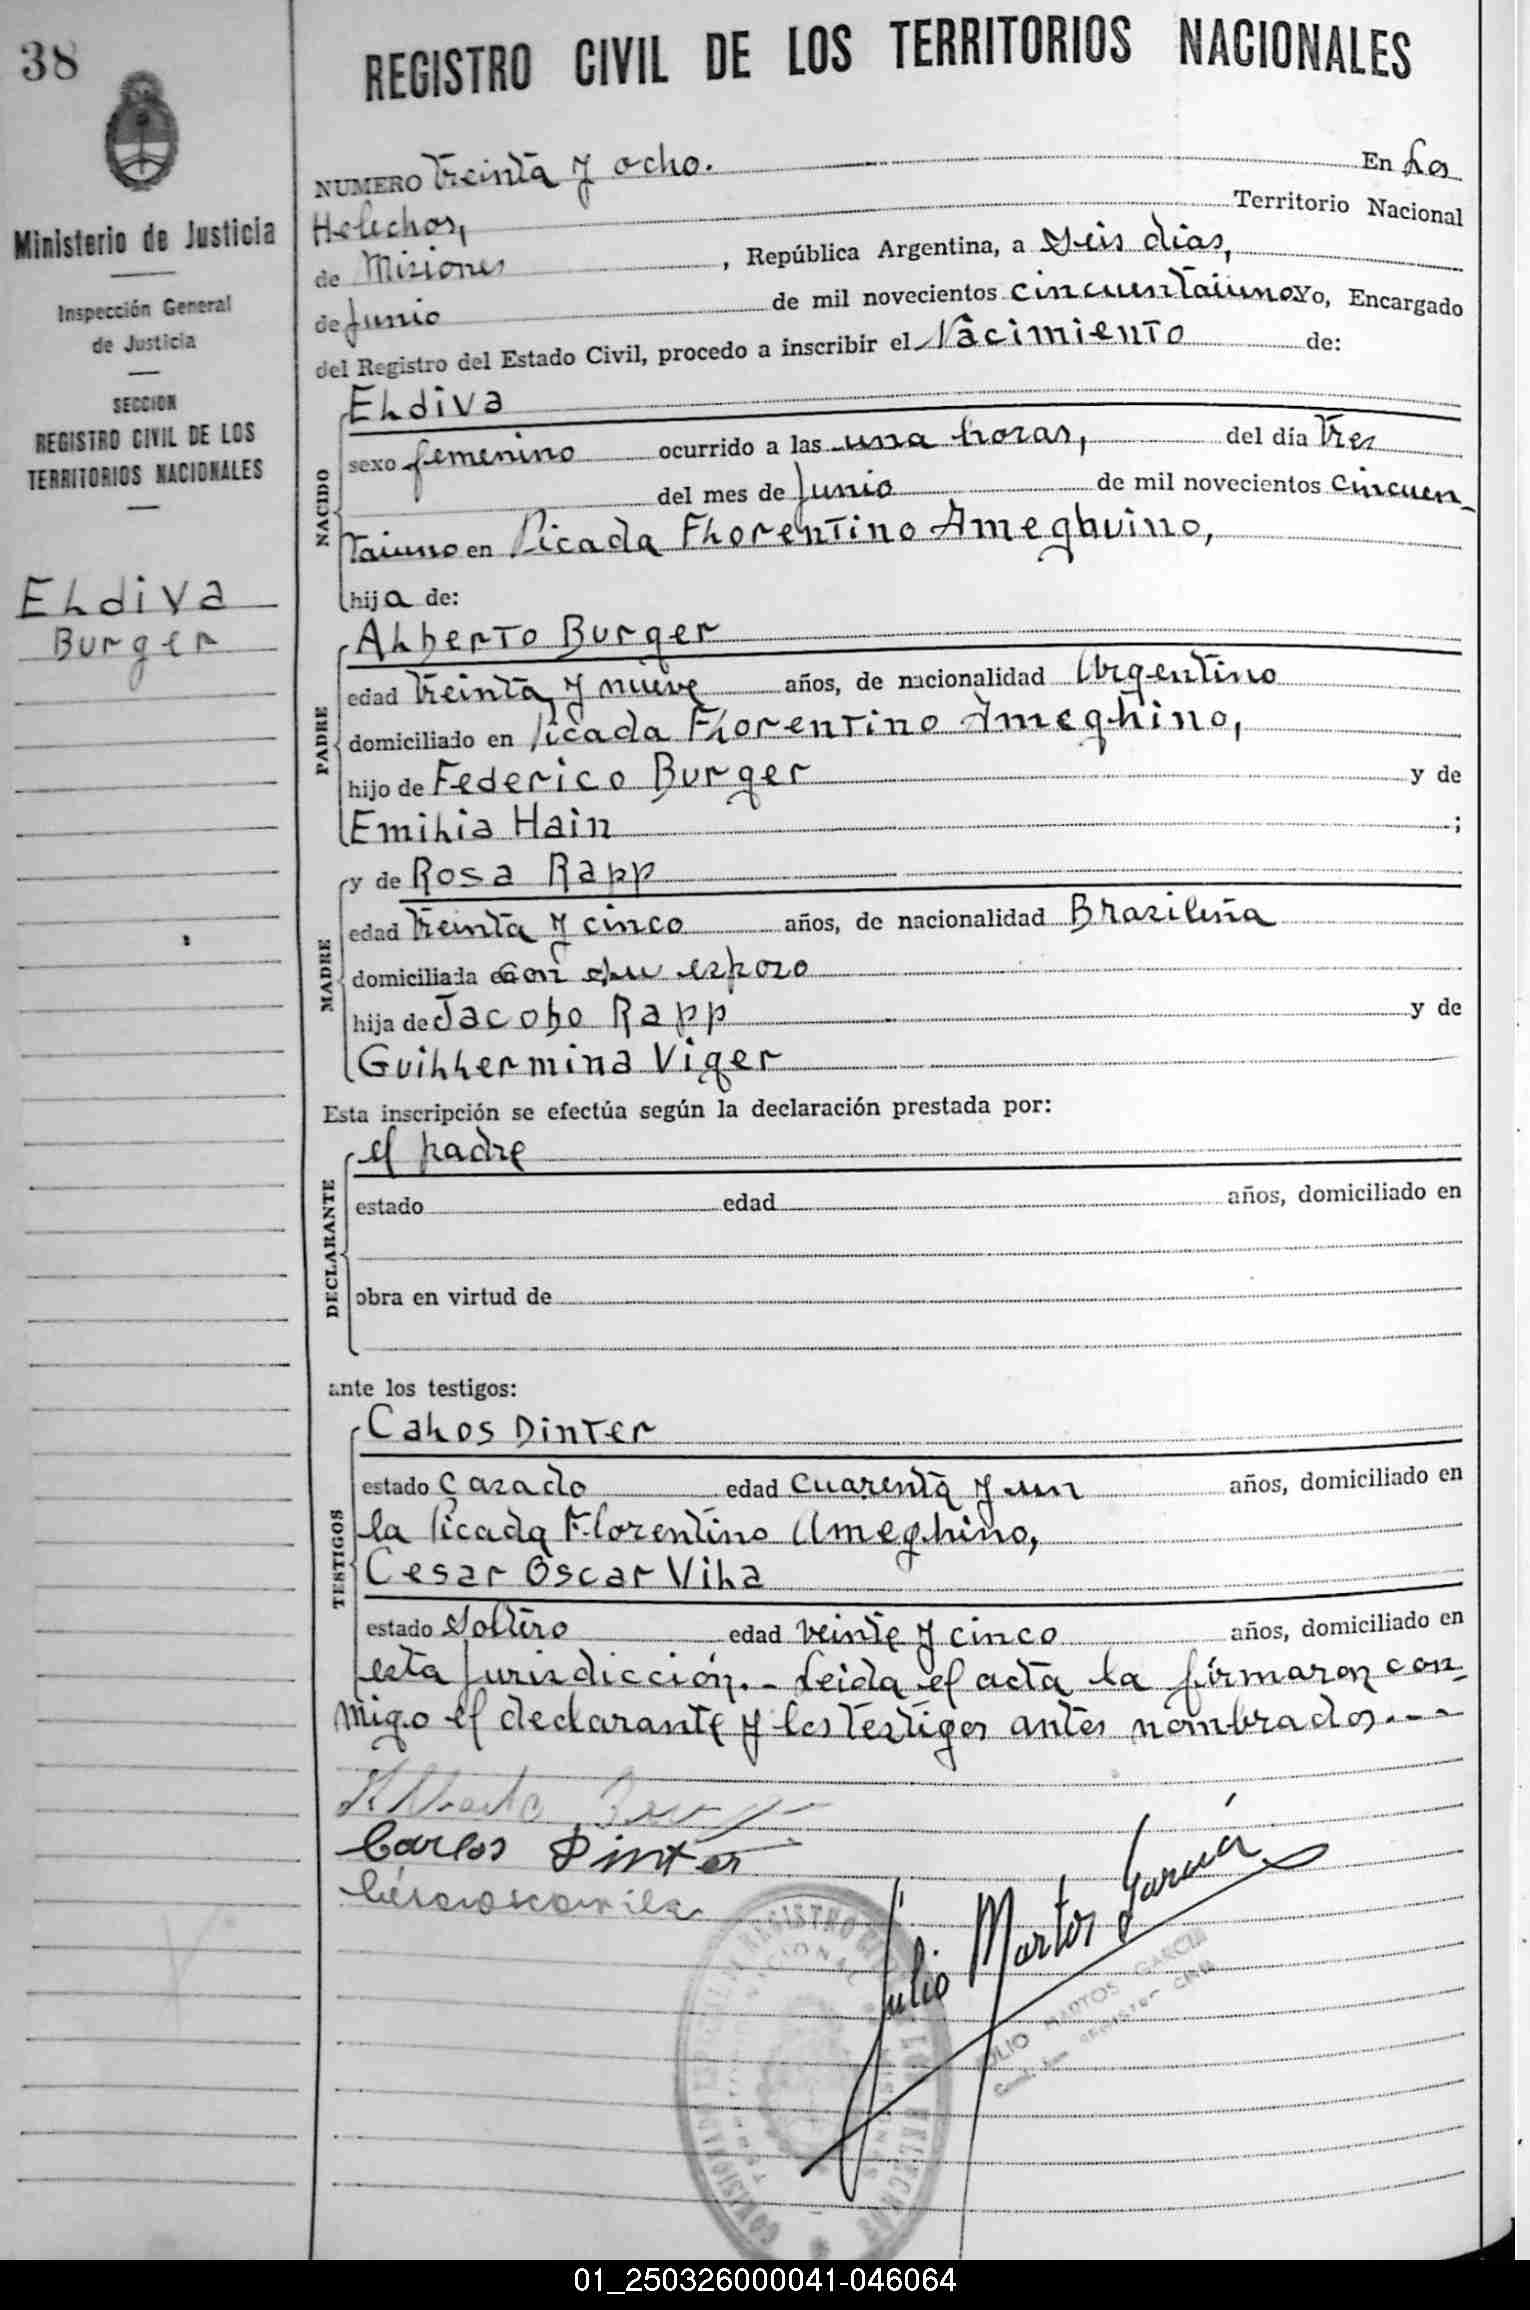 38
REGISTRO CIVIL DE LOS TERRITORIOS NACIONALES
Ministerio de Justicia
Inspección General
de Justicia
SECCION
REGISTRO CIVIL DE LOS
TERRITORIOS NACIONALES
Eldiva
Burger
NUMERO Treinta y ocho. En Los
Helechos, Territorio Nacional
de Misiones, República Argentina, a Seis dias,
de Junio de mil novecientos cincuentaiuno Yo, Encargado
del Registro del Estado Civil, procedo a inscribir el Nacimiento de:
NACIDO
Eldiva
sexo femenino ocurrido a las una horas, del día Tres
del mes de Junio de mil novecientos cincuen-
taiuno en Picada Florentino Ameghuino,
hija de:
PADRE
Alberto Burger
edad Treinta y nueve años, de nacionalidad Argentino
domiciliado en Picada Florentino Ameghino,
hijo de Federico Burger y de
Emilia Hain ;
MADRE
y de Rosa Rapp
edad Treinta y cinco años, de nacionalidad Brasileña
domiciliada con su esposo
hija de Jacobo Rapp y de
Guillermina Viger
Esta inscripción se efectúa según la declaración prestada por:
DECLARANTE
el padre
estado edad años, domiciliado en
obra en virtud de
ante los testigos:
TESTIGOS
Calos Dinter
estado Casado edad Cuarenta y un años, domiciliado en
la Picada Florentino Ameghino,
Cesar Oscar Vila
estado Soltero edad veinte y cinco años, domiciliado en
esta Jurisdicción.- Leida el acta la firmaron con-
migo el declarante y los testigos antes nombrados.---
Alberto Burger
Carlos Dinter
César oscar vila
Julio Martos Garcia
JULIO MARTOS GARCIA
01_250326000041-046064